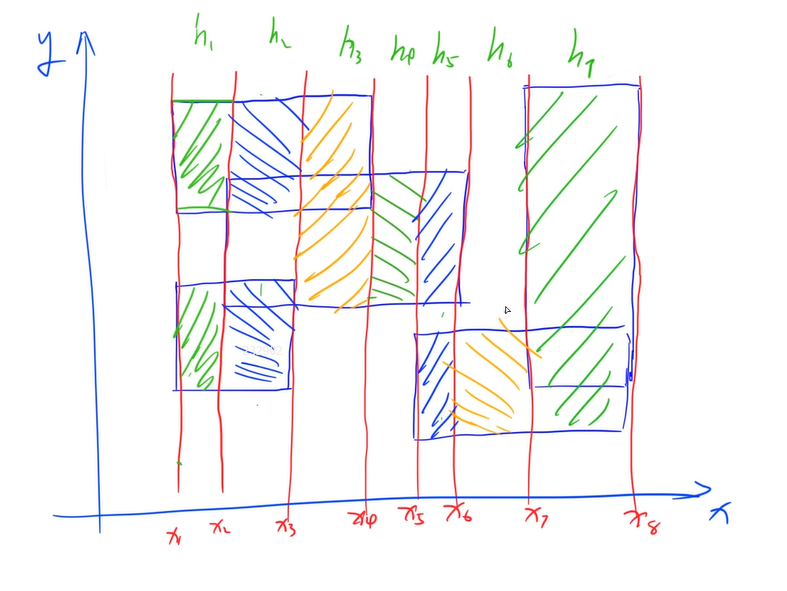 h₁ h₂ h₃ h₄ h₅ h₆ h₇
y
x₁ x₂ x₃ x₄ x₅ x₆ x₇ x₈
x